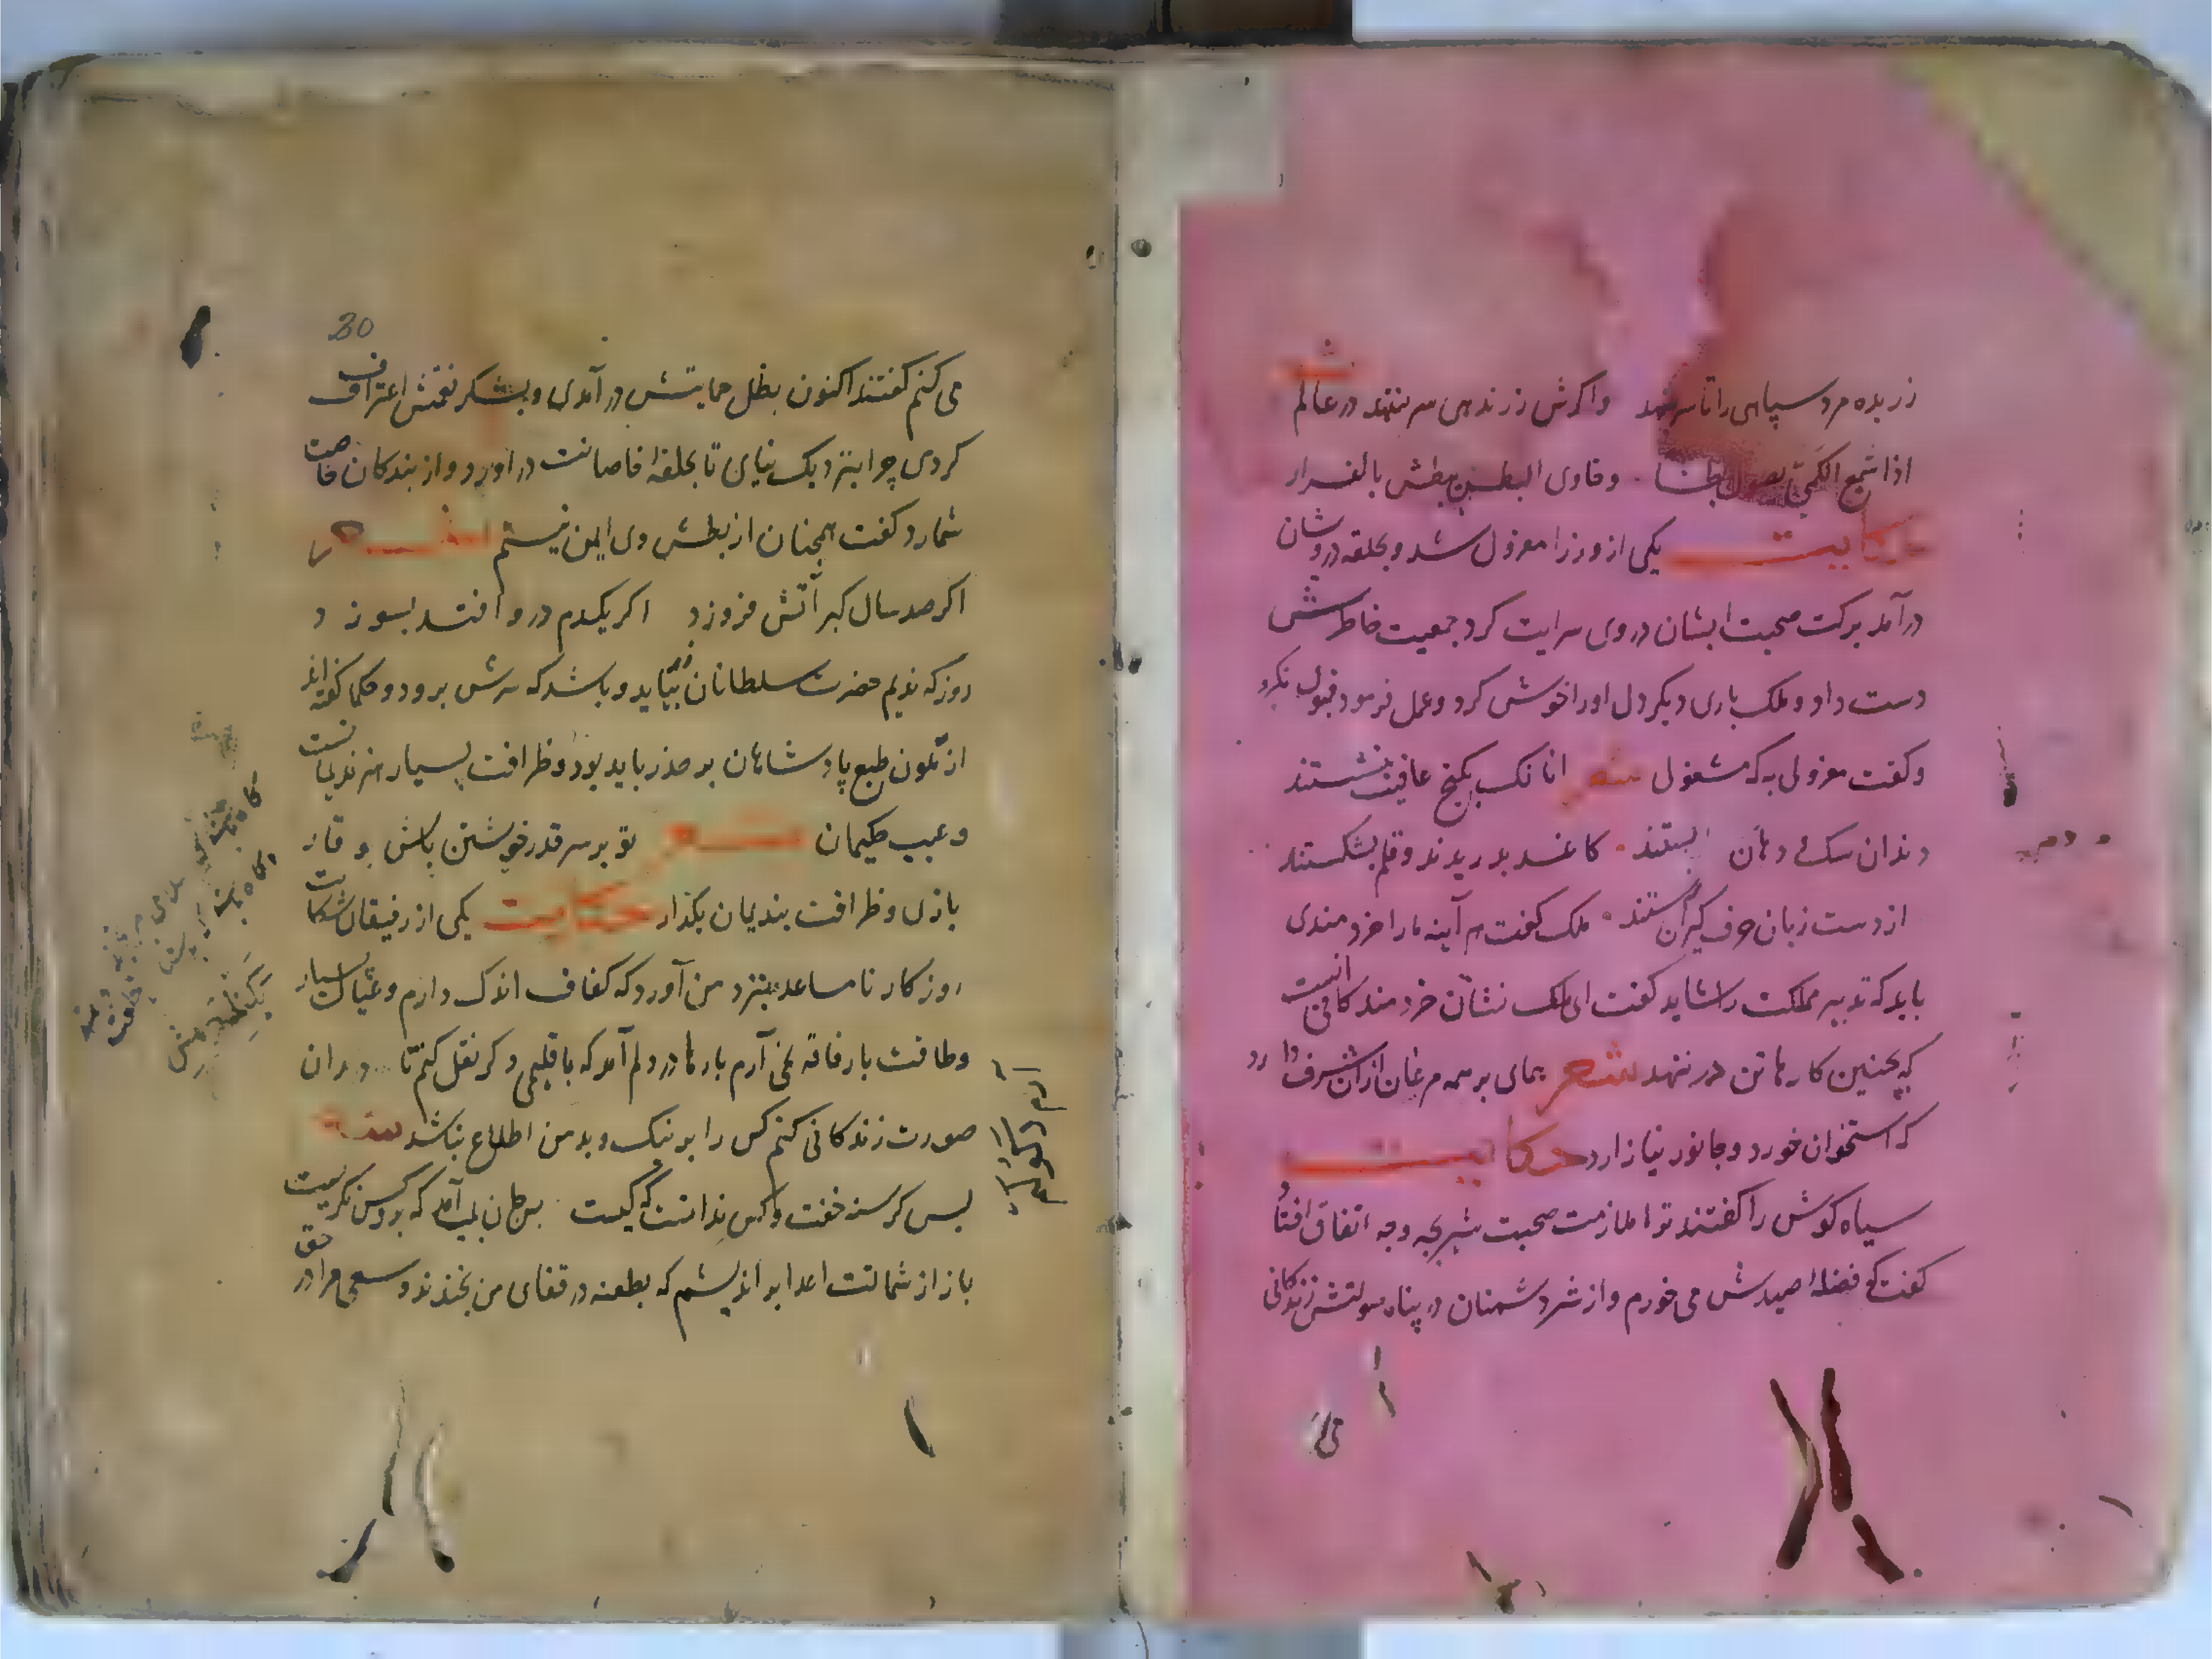 شعر
زر بده مرد سپاهی را تا سر بنهد واکرش زر ندهی سر بنهد در عالم
اذا شبع الکمیّ یصول بطشا وخاوی البطن یبطش بالفرار
حکایت یکی از وزرا معزول شد و بحلقه درویشان
درآمد برکت صحبت ایشان در وی سرایت کرد جمعیت خاطرش
دست داد و ملک باری دیکر دل اورا خوش کرد و عمل فرمود قبول نکرد
و کفت معزولی به که مشغولی شعر انانک بکنج عافیت بنشستند
دندان سک و دهان بستند کاغد بدریدند و قلم بشکستند
از دست زبان حرف کیران رستند ملک کفت هر آینه مارا خردمندی
باید که تدبیر مملکت را شاید کفت ای ملک نشان خردمند کافی انست
که بچنین کارها تن در ننهد شعر همای بر همه مرغان ازان شرف دارد
که استخوان خورد و جانور نیازارد حکایت
سیاه کوش را کفتند ترا ملازمت صحبت شیر بچه وجه اتفاق افتاد
کفت که فضلهٔ صیدش می خورم و از شر دشمنان در پناه صولتش زندکانی
30
می کنم کفتند اکنون بظل حمایتش در آمدی و بشکر نعمتش اعتراف
کردی چرا بنزدیک نیایی تا بحلقهٔ خاصانت در اورد و از بندکان خاصت
شمارد کفت همچنان از بطش وی ایمن نیستم
اکر صد سال کبر آتش فروزد اکر یکدم درو افتد بسوزد
روز که ندیم حضرت سلطانان زر بیابد و باشد که سرش برود و حکما کفته اند
از تلون طبع پادشاهان بر حذر باید بود و ظرافت بسیار هنر ندیمانست
و عیب حکیمان شعر تو بر سر قدر خویشتن باش و وقار
بازی و ظرافت بندیمان بکذار حکایت یکی از رفیقان شکایت
روزکار نا مساعد بنزد من آورد که کفاف اندک دارم و عیال بسیار
و طاقت بار فاقه نمی آرم بارها در دلم آمد که باقلیمی دکر نقل کنم تا دران
صورت زندکانی کنم کس را بر نیک و بد من اطلاع نباشد
بس کرسنه خفت و کس ندانست که کیست بس جان بلب آمد که برو کس نکریست
باز از شماتت اعدا بر اندیشم که بطعنه در قفای من بخندند و سعی مرا در حق